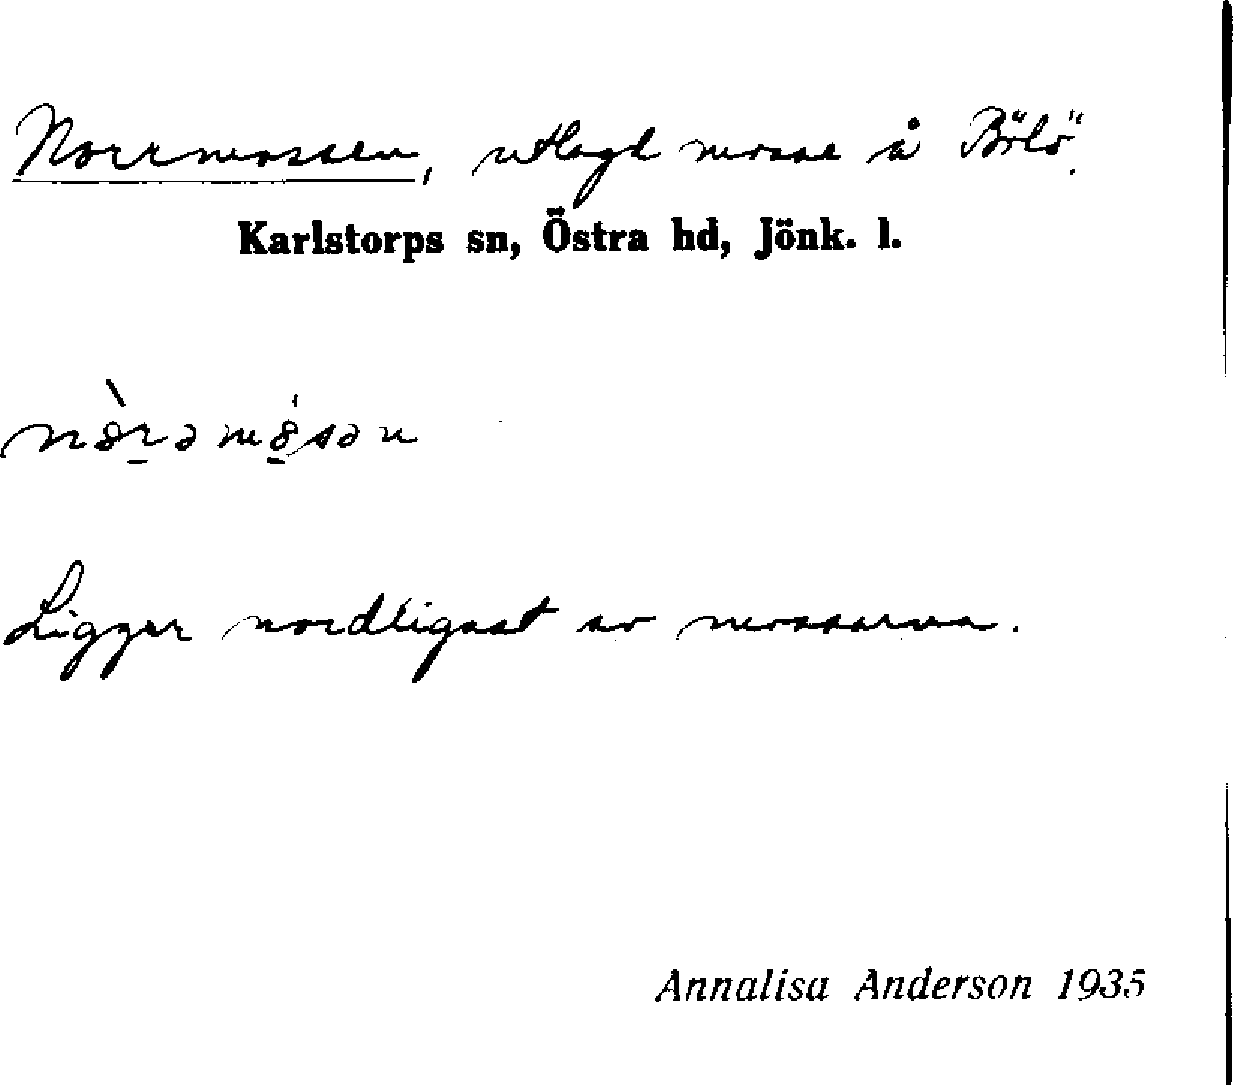 Norrmossen, utlagd mosse å Bölö.
Karlstorps sn, Östra hd, Jönk. l.
Ligger nordligast av mossarna.
Annalisa Anderson 1935